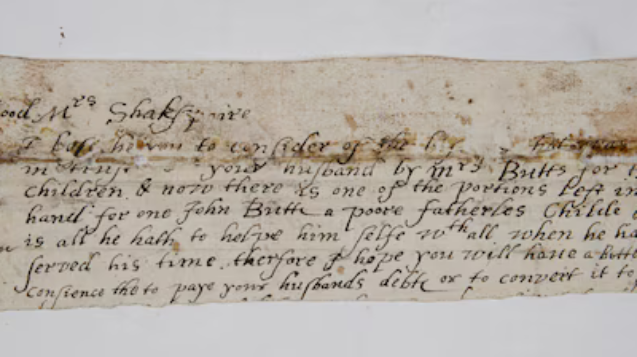 ood Mrs Shakspaire
I bese he you to consider of the
in trust your husband by mrs Butts for
children & now there is one of the portions left in
hand for one John Butte a poore fatherles Childe
is all he hath to helpe him selfe wth all when he ha
served his time therfore I hope you will have a bette
Consience the to paye your husbands debte or to convert it to